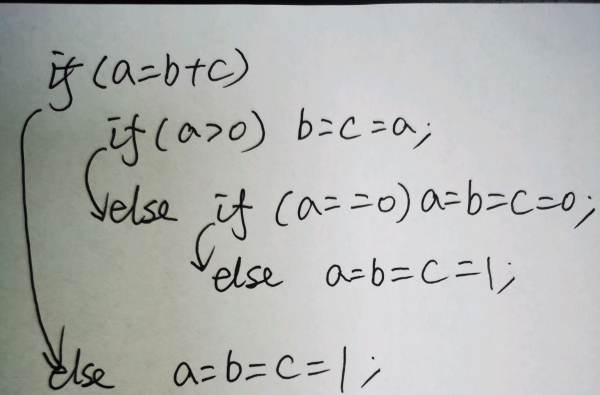 if (a=b+c)
if (a>0) b=c=a;
else if (a==0) a=b=c=0;
else a=b=c=1;
else a=b=c=1;